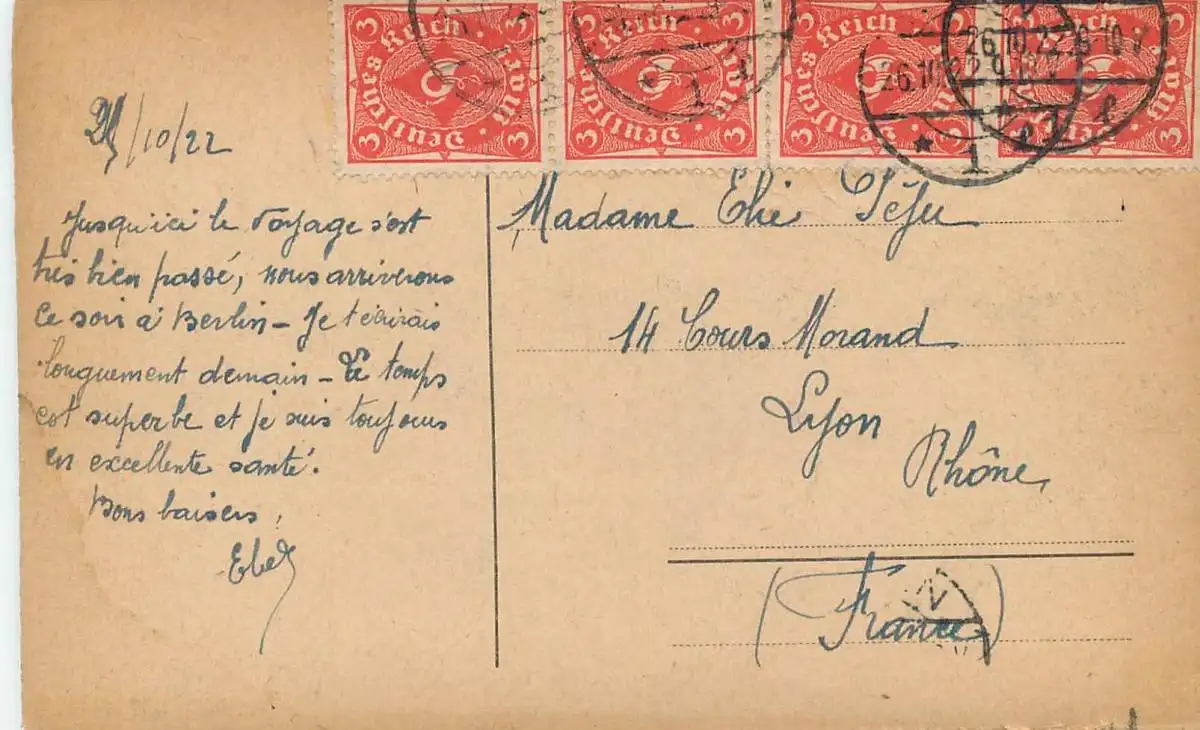 3 Deutsches Reich 3 Mark 3
3 Deutsches Reich 3 Mark 3
3 Deutsches Reich 3 Mark 3
3 Deutsches Reich 3 Mark 3
26.10.22.9-10 V
1
26.10.22.9-10 V
25/10/22
Jusqu'ici le voyage s'est
très bien passé, nous arriverons
ce soir à Berlin - Je t'écrirais
longuement demain - Le temps
est superbe et je suis toujours
en excellente santé.
Bons baisers,
Madame Elie
14 Cours Morand
Lyon
Rhône
(France)